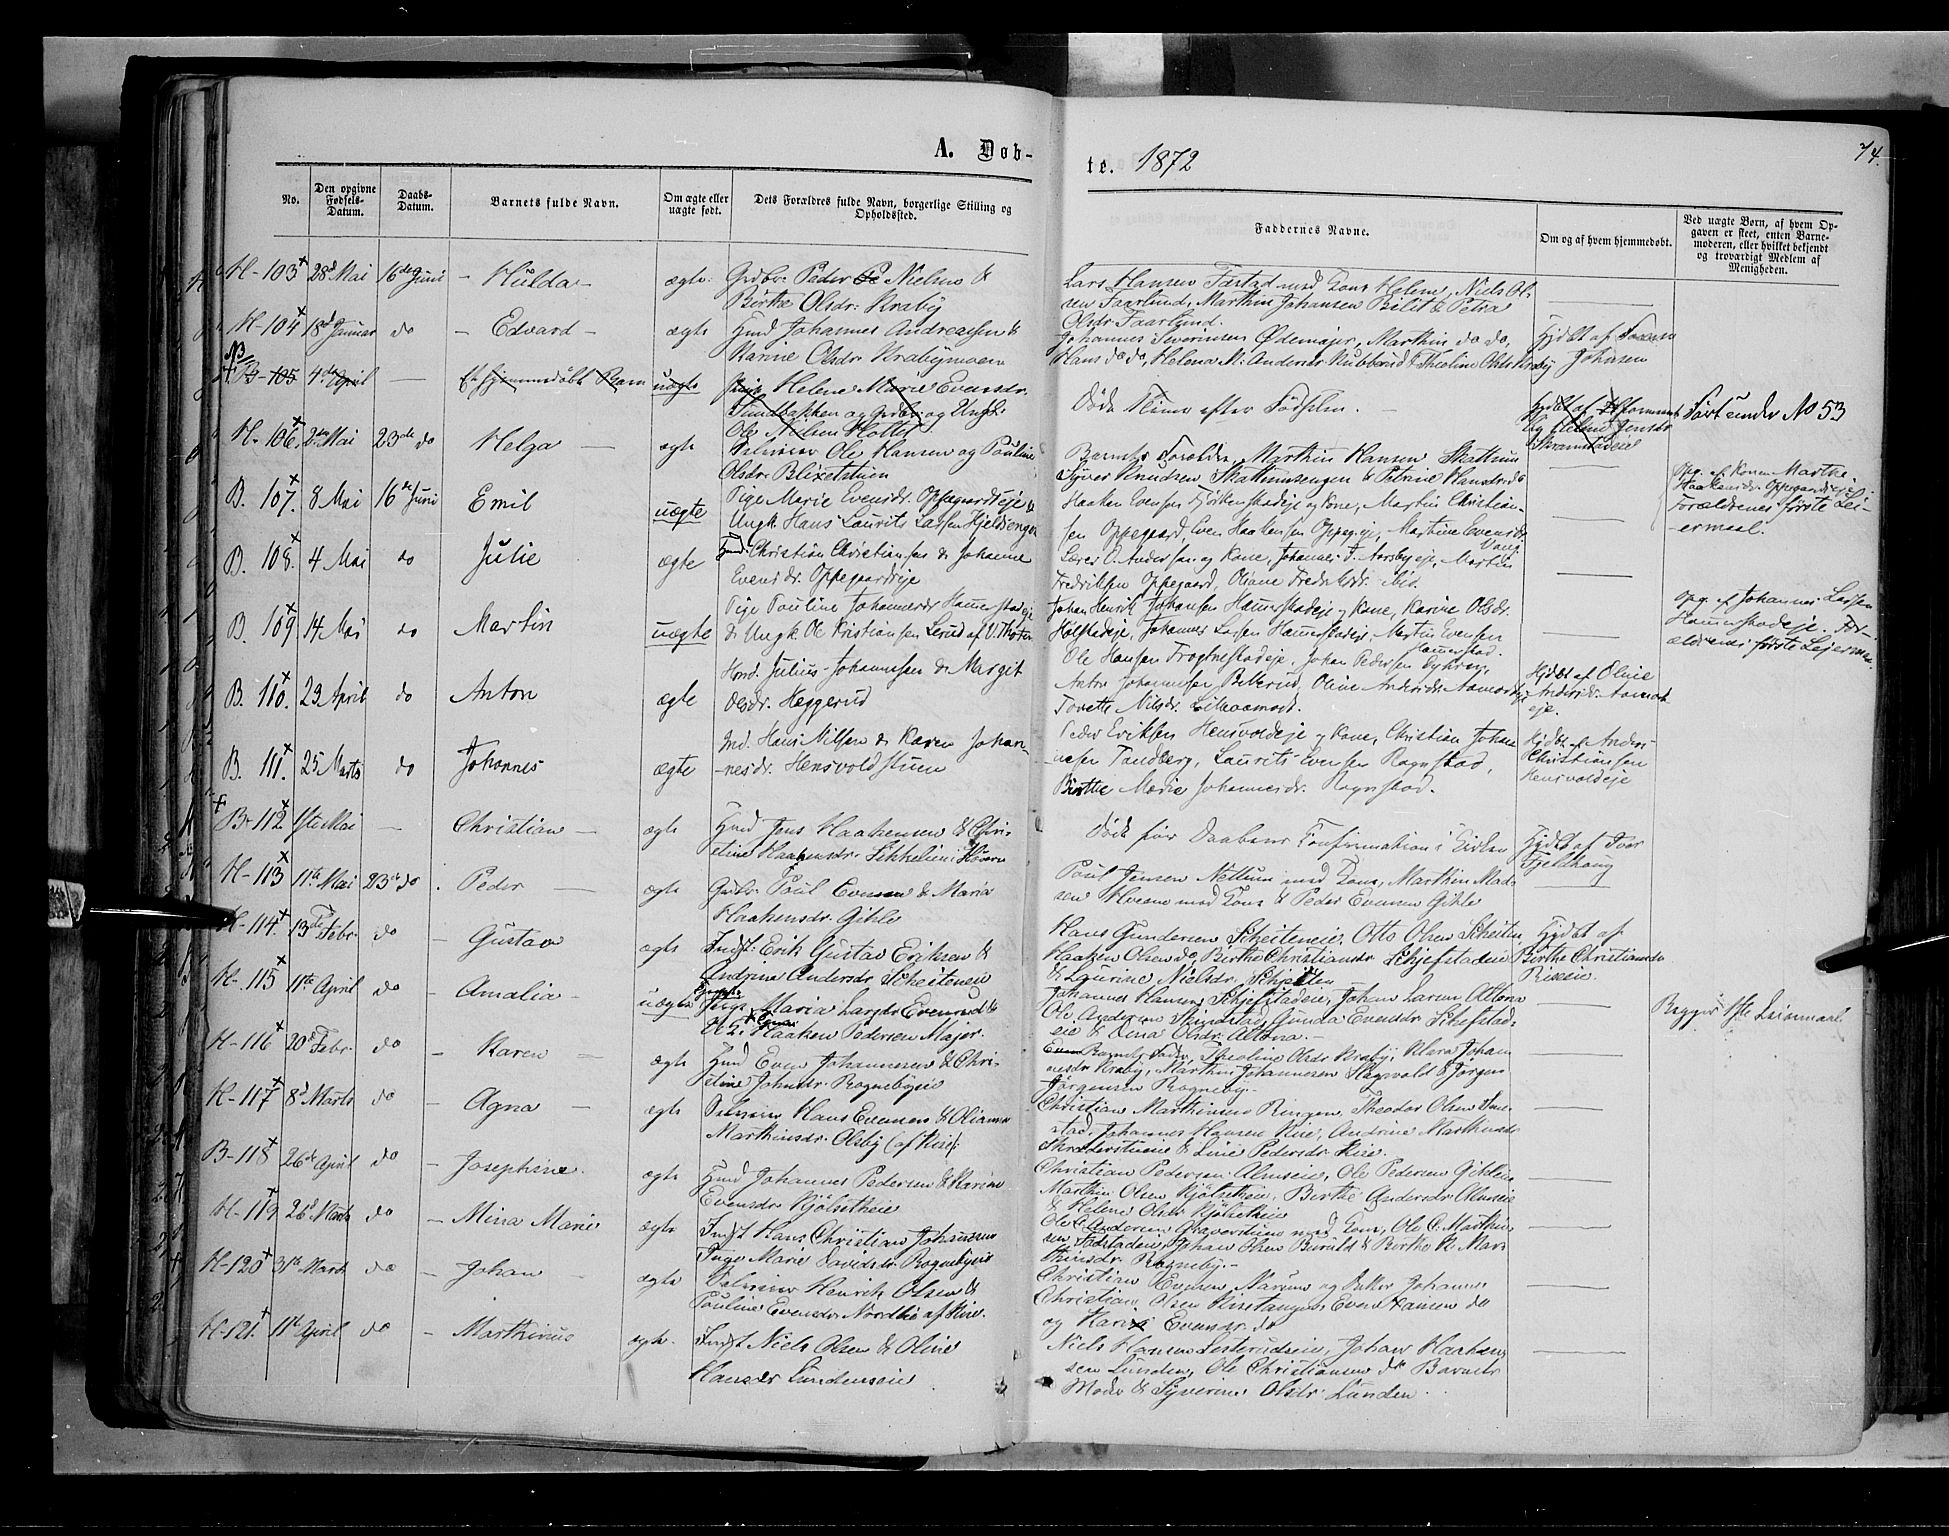 A. Døb-
te. 1872
74.
No.
Den opgivne Fødsels-Datum.
Daabs-Datum.
Barnets fulde Navn.
Om ægte eller uagte født.
Dets Forældres fulde Navn, borgerlige Stilling og Opholdssted.
Faddernes Navne.
Om og af hvem hjemmedøbt.
Ved uægte Børn, af hvem Op-
gaven er skeet, enten Barne-
moderen, eller hvilket bekjendt
og troværdigt Medlem af
Menigheden.
H-103 28d Mai 16de Juni - Hulda - ægte. Grdbr. Peder Nielsen &
Birthe Olsdr. Kraby
Lars Hansen Faestad med Kone Helene, Niels Ol-
sen Faarlund, Marthin Johansen Bilit & Petra
Olsdr Faarlund.
H-104 18d Januar do - Edvard - ægte Hmd Johannes Andreassen &
Karine Olsdr Krabymoen
Johannes Siverinsen Ødemajer, Marthin do do,
Hans do do, Helena M. Andersdr Nubberud & Theoline Olsdr Kraby
Hjdbt af
Johnsen
NB
B-105 4de April - Et hjemmedøbt Barn uægte Pige Helene Marie Evensdr.
Sundbakken og Grdbr. og Ungk.
Ole Nielsen Hottet
Døde Time efter Fødselen.
Ført under No 53
H-106 2den Mai 23de do Helga - ægte Selveier Ole Hansen og Pauline
Olsdr. Blixetstuen
Barnets Forældre, Marthin Hansen Skattum
Syver Knudsen Skattumsengen & Petrine Hansdr do
B. 107. 8 Mai 16de Juni Emil uægte Pige Marie Evensdr. Oppegaardseje &
Ungk. Hans Laurits Larsen Kjeldsengen
Haaken Evensen og Kone, Martin Christian-
sen Oppegaard, Even Haakensen Oppegeje, Martine Evensdr
Opg. af Konen Marthe
Haakensdr. Oppegaardseje.
Forældrenes første Lei-
ermaal.
B. 108. 4 Mai do Julie ægte Hmd. Christian Christiansen & Johanne
Evensdr. Oppegaardseje
Lærer O. Andersen og Kone, Johannes J. Aarsbyeje, Martin
Fredriksen Oppegaard, Oliane Fredriksdr. ibid.
B. 109 14 Mai do Martin uægte Pige Pauline Johannesdr Hammerstadeje
& Ungk. Ole Kristiansen Lerud af V. Thoten
Johan Henrik Johansen Hammerstadeje og Kone, Karine Olsdr.
Holstadeje, Johannes Larsen Hammerstadeje, Martin Evensen
Hammerstad.
opg. af Johannes Larsen
Hammerstadeje. For-
ældrenes første Lejermaal
B. 110. 23 April do Anton ægte Hmd. Julius Johannesen & Margit
Olsdr. Heggerud
Ole Hansen Frognestadeje, Johan Pedersen
Anton Johannesen Bellerud, Oline Andersdr. Aamodseje,
Torette Nilsdr. Lilleaamodt.
Hjdbt af Oline
Andersdr. Aamodt-
eje.
B. 111. 25 Marts do Johannes ægte Ind. Hans Nilsen & Karen Johan-
nesdr. Hensvoldstuen
Peder Eriksen Hensvoldeje og Kone, Christian Johan-
nesen Tandberg, Laurits Evensen Rognstad,
Birthe Marie Johannesdr. Rognstad.
Hjdbt af Anders
Christiansen
Hensvoldeje
B-112 1ste Mai - Christian - ægte Hmd Jens Haakensen & Chri-
stine Haakensdr. Sikkelien i Hveem
Døde før Daabens Confirmation i Kirken
Hjdbt af Iver
Fjeldhaug
H-113 11te Mai 23de do Peder - ægte Grdbr. Poul Evensen & Maria
Haakensdr. Gihle
Poul Jensen Nettum med Kone, Marthin Mad-
sen Hveem med Kone & Peder Evensen Gihle
H-114 13de Febr. do - Gustav ægte Indst. Erik Gustav Eriksen &
Andrine Andersdr. Scheiteneie
Hans Gundersen Scheiteneie, Otto Olsen Scheiten,
Haaken Olsen do, Birthe Christiansdr. Skjefstadeie
& Laurine Nielsdr. Schjelten
Hjdbt af
Birthe Christiansdr
Riseeie.
H-115 11te April do - Amalia - uægte Pige Maria Larsdr. Evenrud &
Haaken Pedersen Majer
Johannes Hansen Skjefstadeie, Johan Larsen Altona
Ole Andersen Skinstad, Gunda Evensdr. Skjefstad-
eie & Dina Olsdr. Altona.
Begges 1ste Leiermaal.
H-116 20d Febr. do - Karen - ægte Hmd Even Johannesen & Chri-
stine Johnsdr. Rognebyeie
Barnets Fader, Theoline Olsdr Kraby, Klara Johan-
nesdr Kraby, Marthin Johannesen Hagevold & Jørgen
Jørgensen Rogneby.
H-117 8d Marts do - Agna - ægte Selveier Hans Evensen & Oliana
Marthinsdr. Olsby (af Kise)
Christian Marthinsen Ringen, Theodor Olsen
stad, Johannes Hansen Kise, Andrine Marthinsdr
Skrederstuen & Line Pedersdr. Kise.
B-118 26de April do - Josephine ægte Hmd Johannes Pedersen & Karine
Evensdr. Kjølsetheie
Christian Pedersen Almseie, Ole Pedersen Gihle,
Marthin Olsen Kjølsetheie, Berthe Andersdr Almseie
& Helene Olsdr Kjølsetheie
H-119 26d Marts do - Mina Marie ægte Indst Hans Christian Johannesen
Inge Marie Davidsdr. Rognebyeie
Ole Andersen Graverstuen med Kone, Ole C. Marthin-
sen Fodstadeie, Johan Olsen Buruld & Berthe M. Mar-
thinsdr Rogneby.
H-120 31te Marts do - Johan - ægte Selveier Henrik Olsen &
Pauline Evensdr. Nordlie af Kise.
Christian Evensen Narum og Søster Johanne
Christian Olsen Kisetangen, Even Hansen do
og Karine Evensdr. do
H-121. 11te April do - Marthinus ægte. Indst Niels Olsen & Oline
Hansdr Lundenseie
Niels Hansen Lesterudseie, Johan Haaken-
sen Lunden, Ole Christiansen do Barnets
Moder & Syverine Olsdr. Lunden.